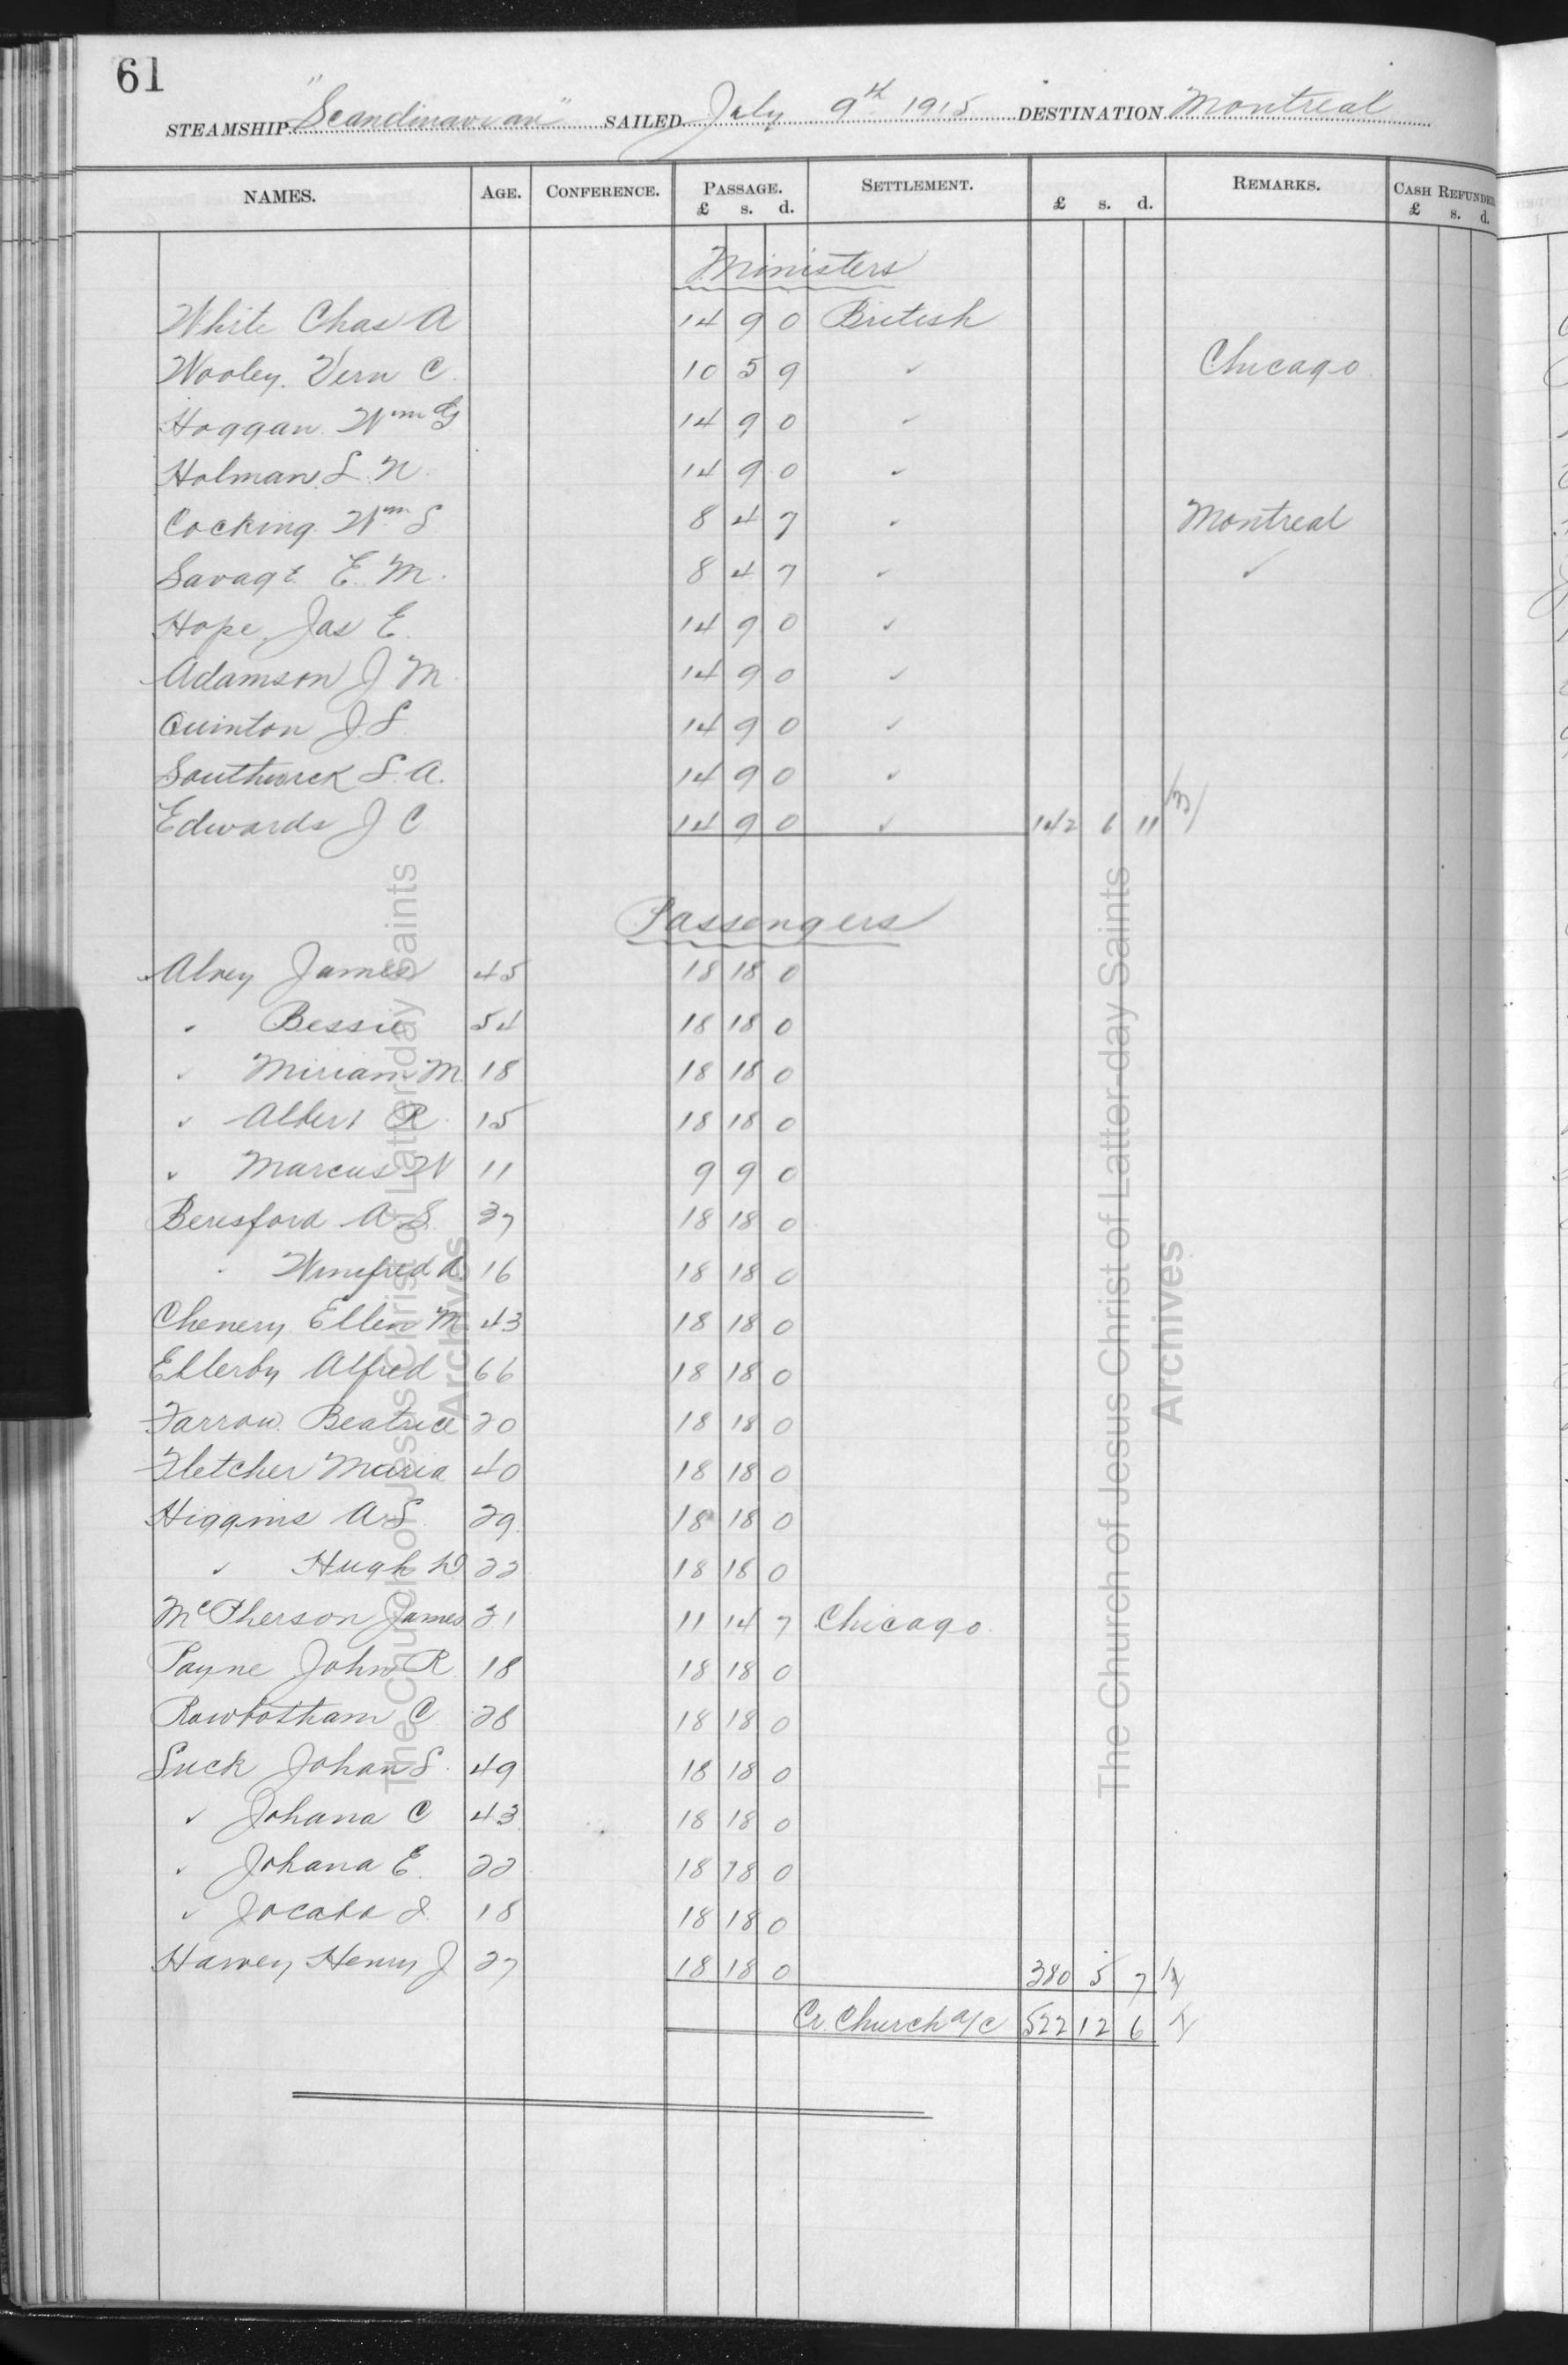 61
STEAMSHIP "Scandinavian" SAILED July 9th 1915 DESTINATION Montreal
NAMES. AGE. CONFERENCE. PASSAGE. SETTLEMENT. REMARKS. CASH REFUNDED
£ s. d. £ s. d. £ s. d.
Ministers
White Chas A 14 9 0 British
Wooley. Vern C. 10 5 9 ✓ Chicago
Hoggan Wm G 14 9 0 ✓
Holman S. N. 14 9 0 ✓
Cocking Wm S 8 4 7 ✓ Montreal
Savage E. M. 8 4 7 ✓ ✓
Hope, Jas E. 14 9 0 ✓
Adamson J M 14 9 0 ✓
Quinton J. S. 14 9 0 ✓
Southwick S. A. 14 9 0 ✓
Edwards J C 14 9 0 ✓ 142 6 11
Passengers
Alvey James 45 18 18 0
✓ Bessie 54 18 18 0
✓ Miriam M. 18 18 18 0
✓ Albert R 15 18 18 0
✓ Marcus W 11 9 9 0
Beresford A. S. 37 18 18 0
" Winifred A. 16 18 18 0
Chenery Ellen M. 43 18 18 0
Ellerby Alfred 66 18 18 0
Farrow Beatrice 20 18 18 0
Fletcher Maria 40 18 18 0
Higgins A. S. 29 18 18 0
✓ Hugh D 22 18 18 0
McPherson James 21 11 14 7 Chicago
Payne John R. 18 18 18 0
Rowbotham C 28 18 18 0
Suck Johan S. 49 18 18 0
✓ Johana C 43 18 18 0
✓ Johana E. 22 18 18 0
✓ Jacoba J. 18 18 18 0
Harvey Henry J 27 18 18 0 380 5 7
Cr. Church a/c 522 12 6
The Church of Jesus Christ of Latter-day Saints
Archives
The Church of Jesus Christ of Latter-day Saints
Archives